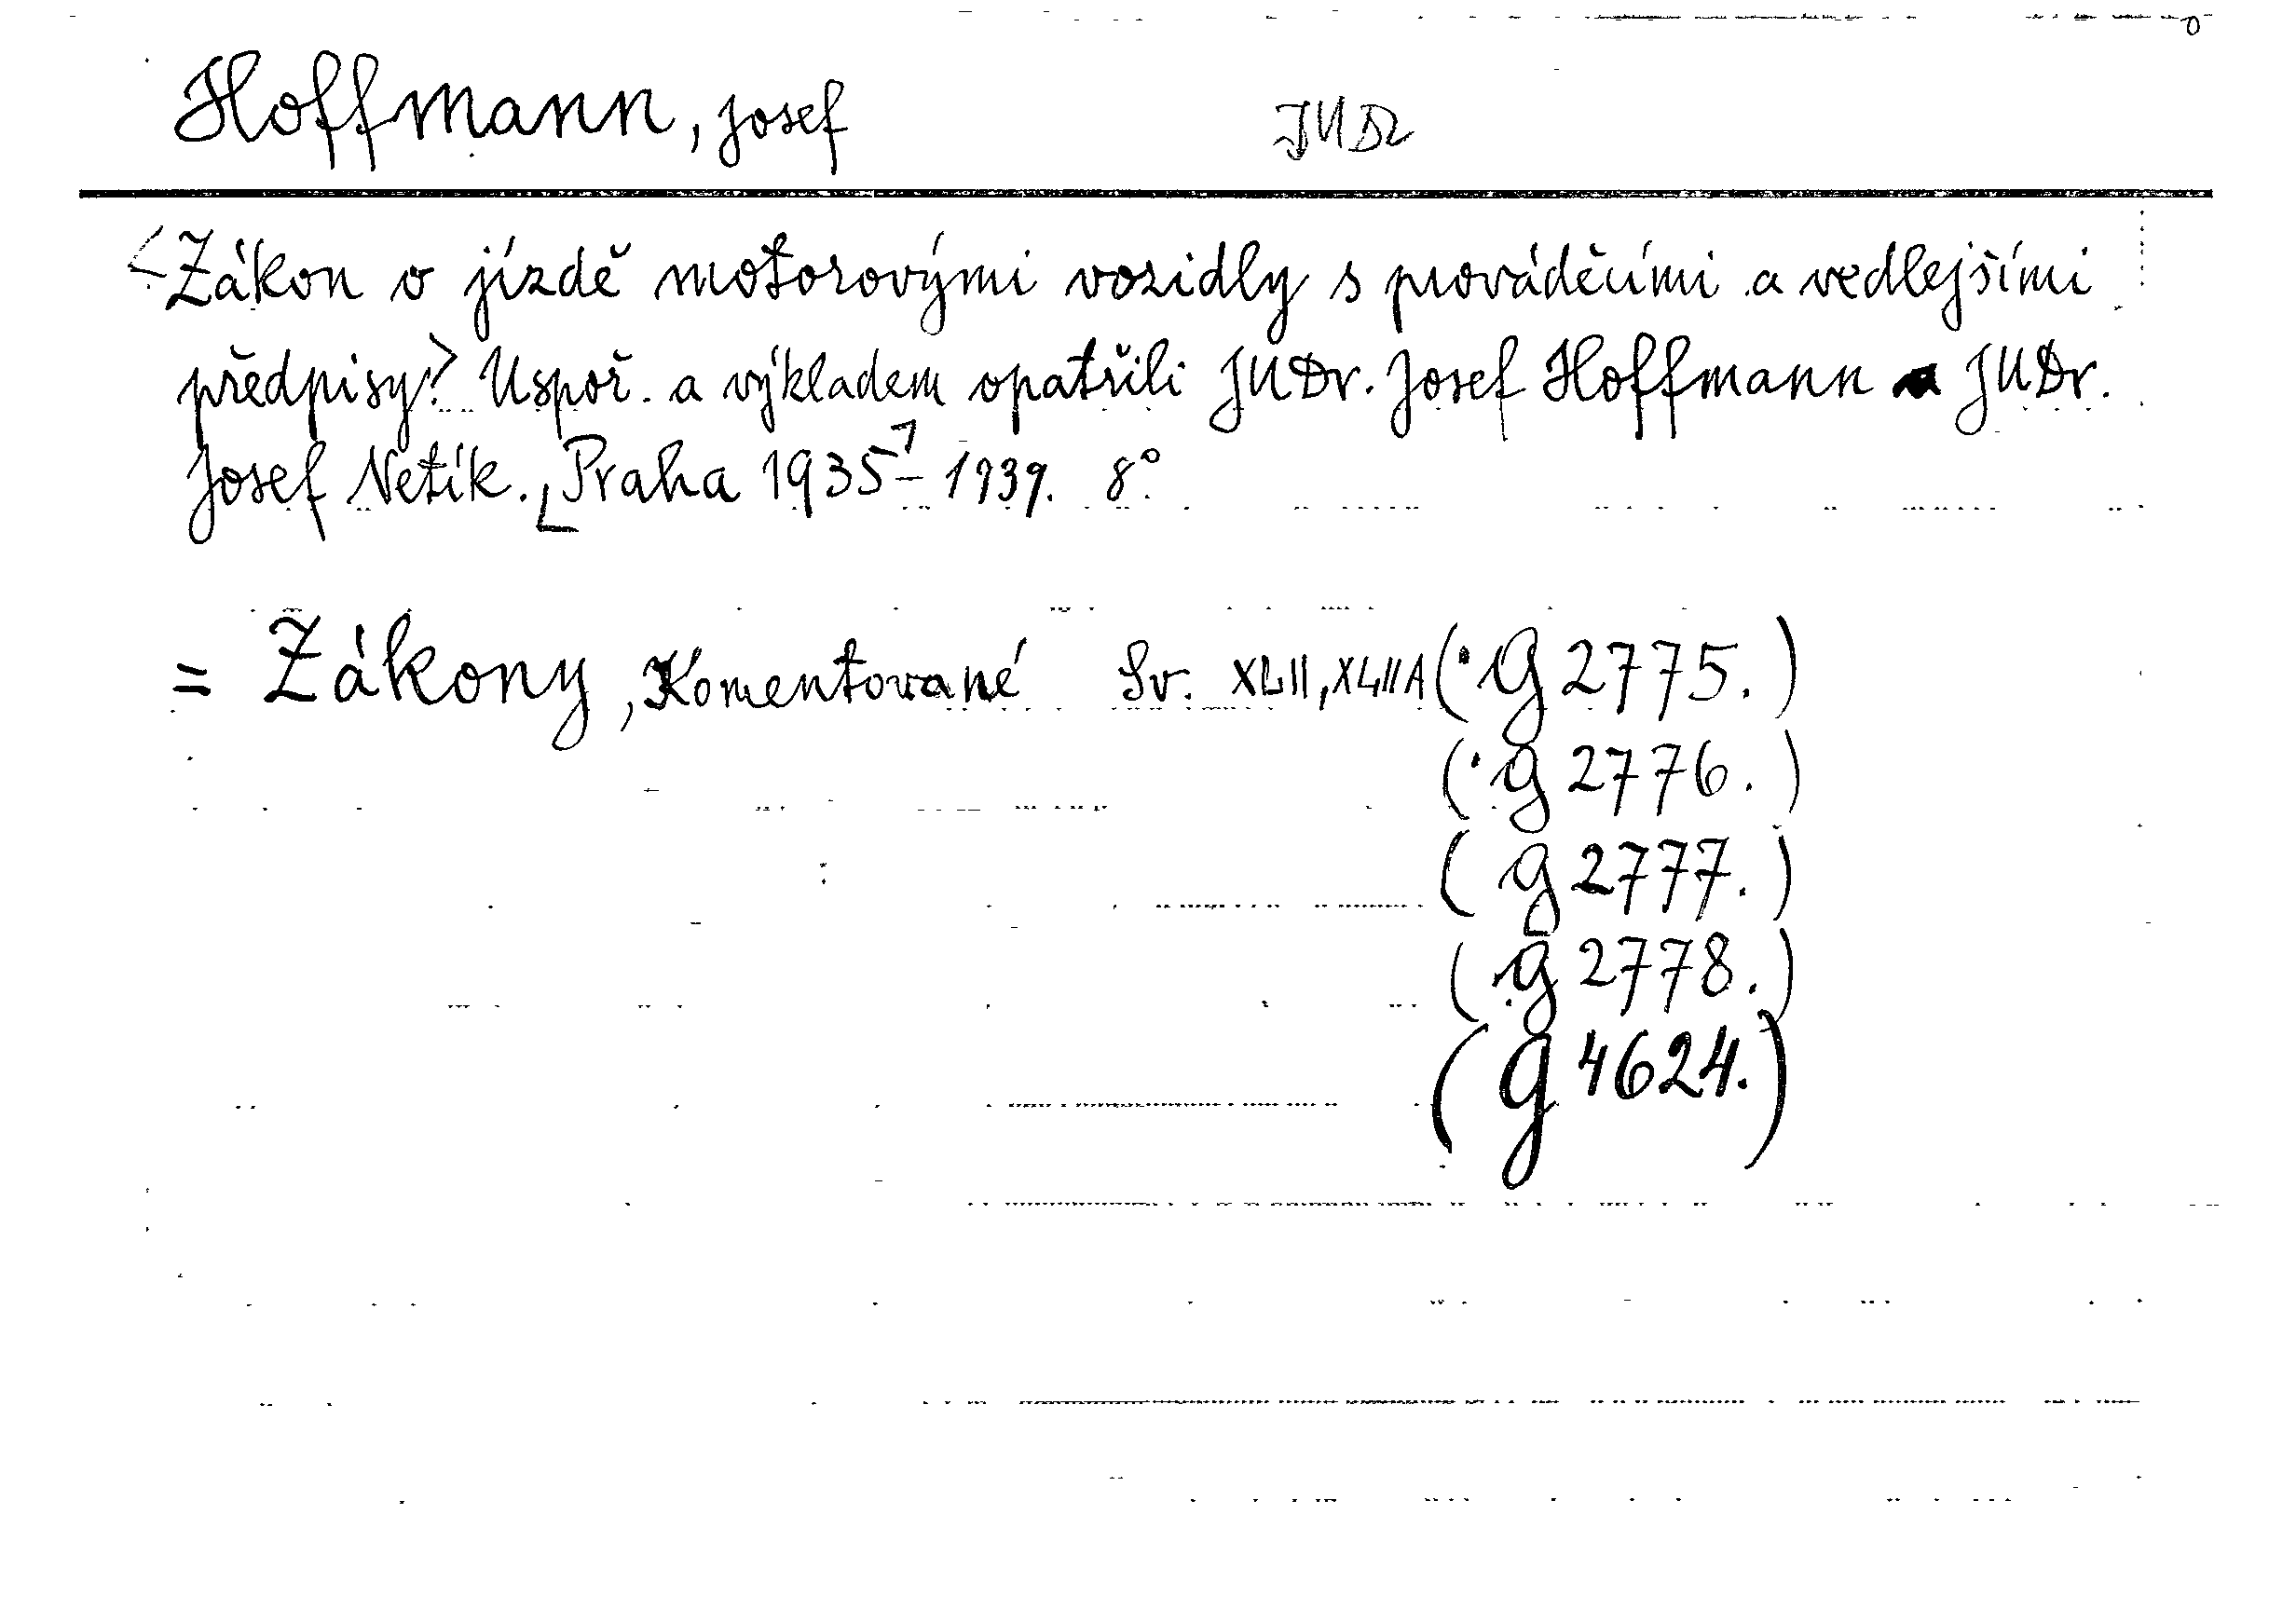 Hoffmann, Josef JUDr
<Zákon o jízdě motorovými vozidly s prováděcími a vedlejšími
předpisy.> Uspoř. a výkladem opatřili JUDr. Josef Hoffmann a JUDr.
Josef Netík. [Praha 1935]-1939. 8°.
= Zákony, Komentované Sv. XLII, XLIIA (·G 2775.)
(·G 2776.)
(G 2777.)
(G 2778.)
(G 4624.)